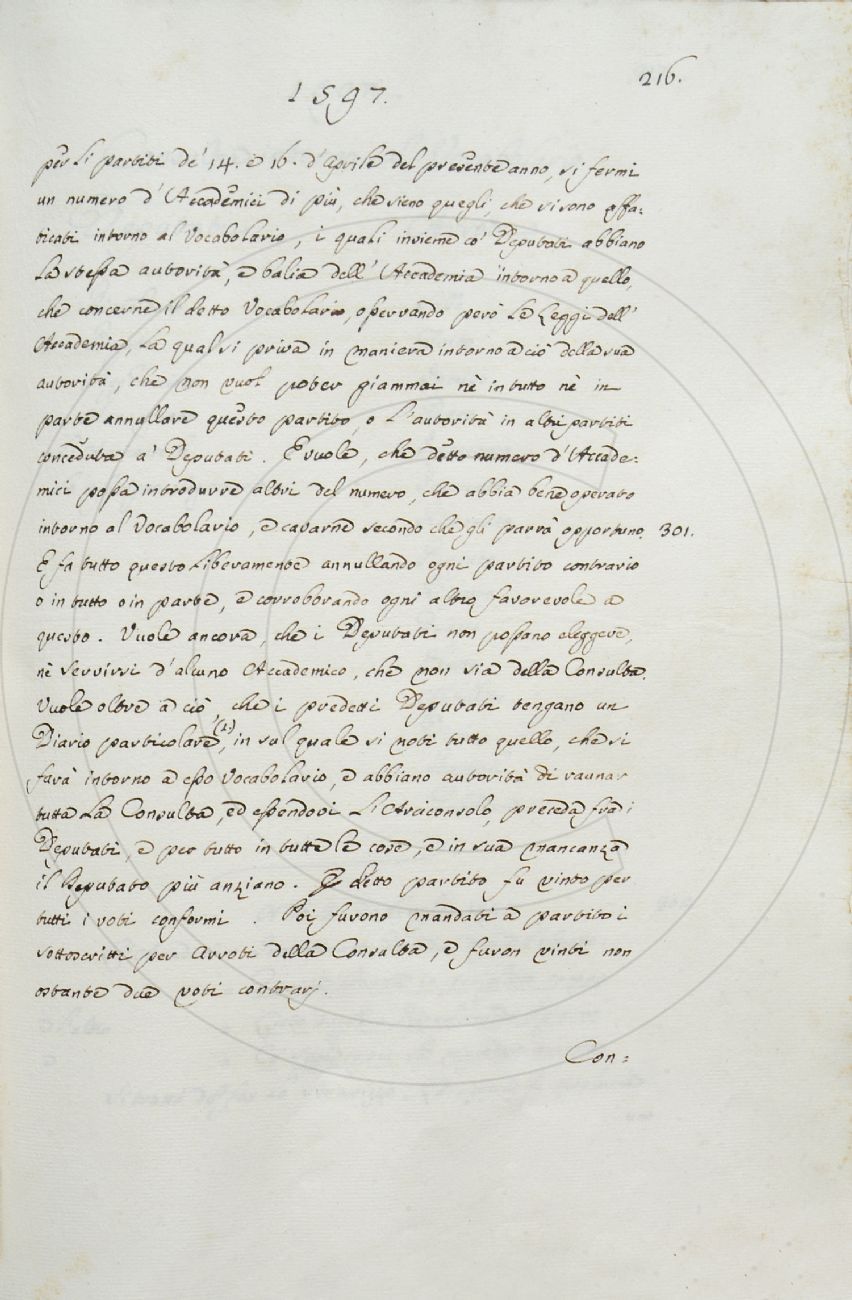 216.
1597.
per li partiti de' 14. e 16. d'Aprile del presente anno, si fermi
un numero d'Accademici di più, che sieno quegli, che si sono affa=
ticati intorno al Vocabolario, i quali insieme co' Deputati abbiano
la stessa autorità, e balìa dell'Accademia intorno a quello,
che concerne il detto Vocabolario, osservando però le Leggi dell'
Accademia, la qual si priva in maniera intorno a ciò della sua
autorità, che non vuol poter giammai nè in tutto nè in
parte annullare questo partito, o l'autorità in altri partiti
conceduta a' Deputati. E vuole, che detto numero d'Accade=
mici possa introdurre altri del numero, che abbia bene operato
intorno al Vocabolario, e cavarne secondo che gli parrà opportuno. 301.
E fa tutto questo liberamente annullando ogni partito contrario
o in tutto o in parte, e corroborando ogni altro favorevole a
questo. Vuole ancora, che i Deputati non possano eleggere,
nè servirsi d'alcuno Accademico, che non sia della Consulta.
Vuole oltre a ciò, che i predetti Deputati tengano un
Diario particolare (1), in sul quale si noti tutto quello, che si
farà intorno a esso Vocabolario, e abbiano autorità di raunar
tutta la Consulta, ed essendovi l'Arciconsolo, preceda fra i
Deputati, e per tutto in tutte le cose, e in sua mancanza
il Deputato più anziano. Il detto partito fu vinto per
tutti i voti conformi. Poi furono mandati a partito i
sottoscritti per Arroti della Consulta, e furon vinti non
ostante due voti contrarj.
Con=